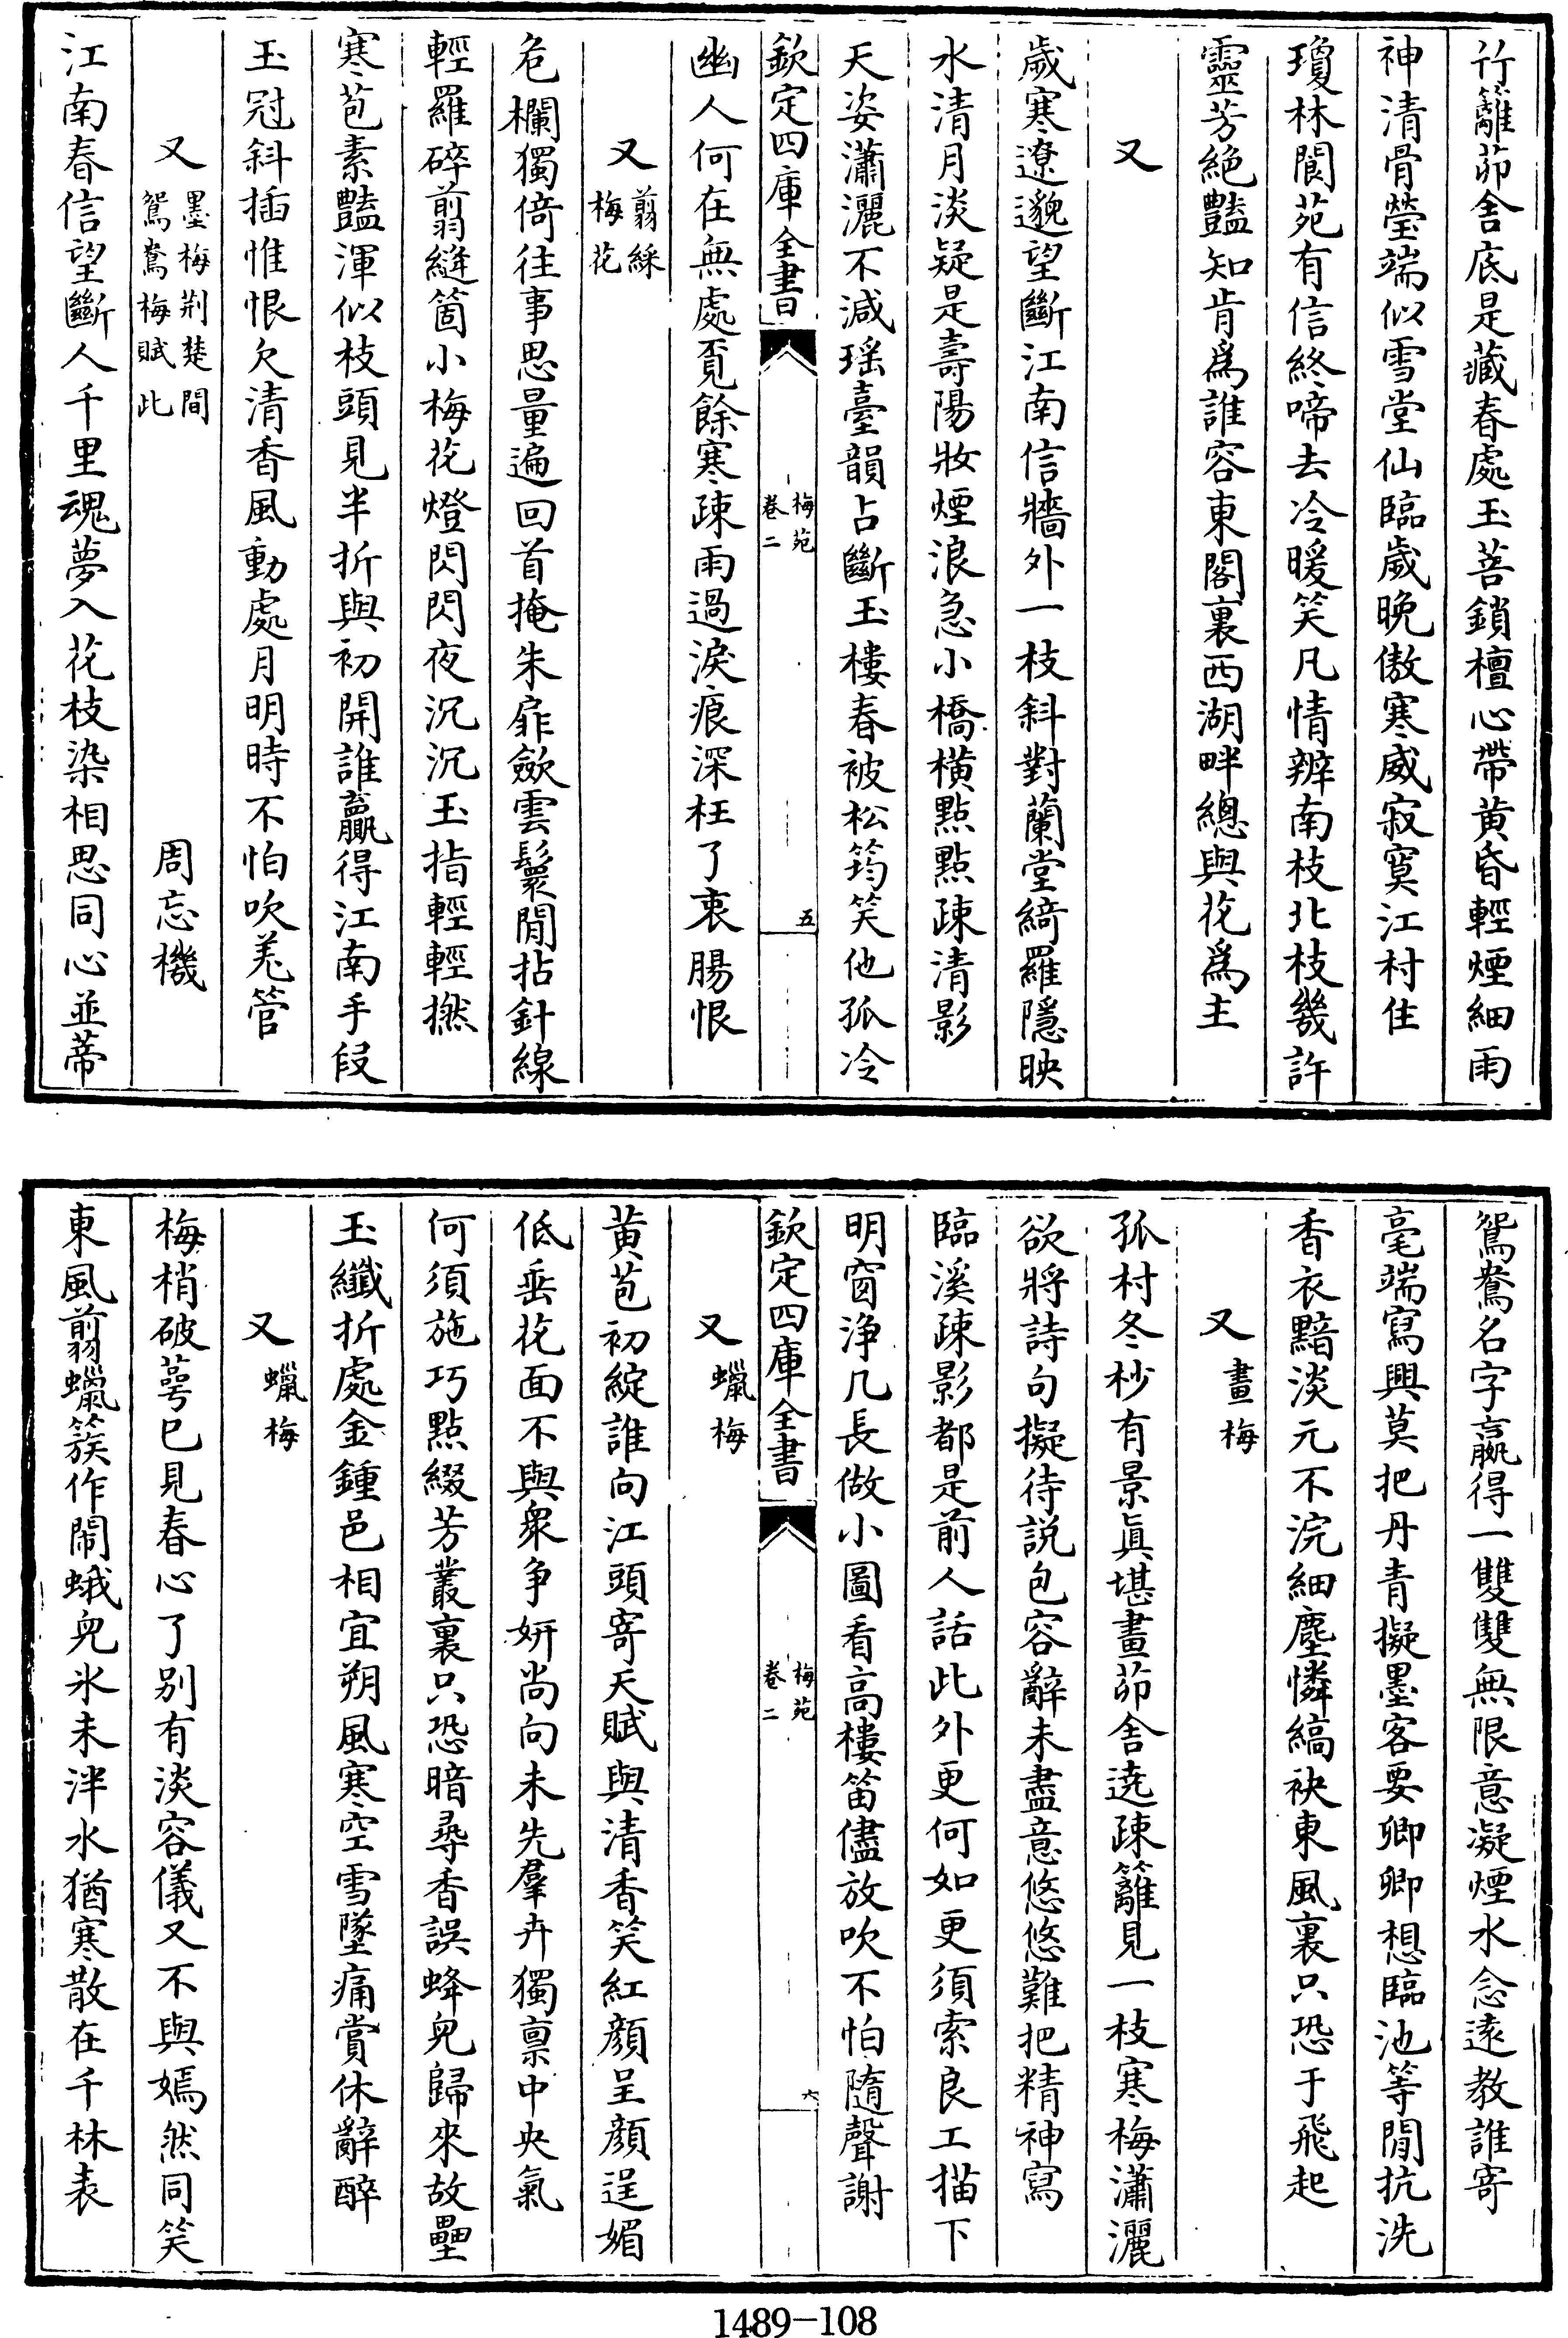 竹籬茆舍底是藏春處玉菩鎖檀心帶黄昏輕煙細雨
神清骨瑩端似雪堂仙臨歲晚傲寒威寂寞江村住
瓊林閬苑有信終啼去冷暖笑凡情辨南枝北枝幾許
靈芳絶豔知肯爲誰容東閣裏西湖畔總與花爲主
又
歲寒遼邈望斷江南信牆外一枝斜對蘭堂綺羅隱映
水清月淡疑是壽陽妝煙浪急小橋横點點疎清影
天姿瀟灑不減瑶臺韻占斷玉樓春被松筠笑他孤冷
欽定四庫全書
梅苑
卷二
五
幽人何在無處覓餘寒疎雨過淚痕深枉了衷腸恨
又 翦綵梅花
危欄獨倚往事思量遍回首掩朱扉斂雲鬟閒拈針線
輕羅碎翦縫箇小梅花燈閃閃夜沉沉玉指輕輕撚
寒苞素豔渾似枝頭見半折與初開誰贏得江南手段
玉冠斜插惟恨欠清香風動處月明時不怕吹羌管
又 墨梅荆楚間鴛鴦梅賦此 周忘機
江南春信望斷人千里魂夢入花枝染相思同心並蒂
鴛鴦名字贏得一雙雙無限意凝煙水念遠教誰寄
毫端寫興莫把丹青擬墨客要卿卿想臨池等閒抗洗
香衣黯淡元不浣細塵憐縞袂東風裏只恐于飛起
又 畫梅
孤村冬杪有景真堪畫茆舍遶疎籬見一枝寒梅瀟灑
欲將詩句擬待説包容辭未盡意悠悠難把精神寫
臨溪疎影都是前人話此外更何如更須索良工描下
明窗浄几長做小圖看高樓笛儘放吹不怕隨聲謝
欽定四庫全書
梅苑
卷二
六
又 蠟梅
黄苞初綻誰向江頭寄天賦與清香笑紅顔呈顔逞媚
低垂花面不與衆争妍尚向未先羣卉獨禀中央氣
何須施巧點綴芳叢裏只恐暗尋香誤蜂兒歸來故壘
玉纖折處金鍾邑相宜朔風寒空雪墜痛賞休辭醉
又 蠟梅
梅梢破萼已見春心了别有淡容儀又不與嫣然同笑
東風翦蠟簇作鬧蛾兒氷未泮水猶寒散在千林表
1489-108